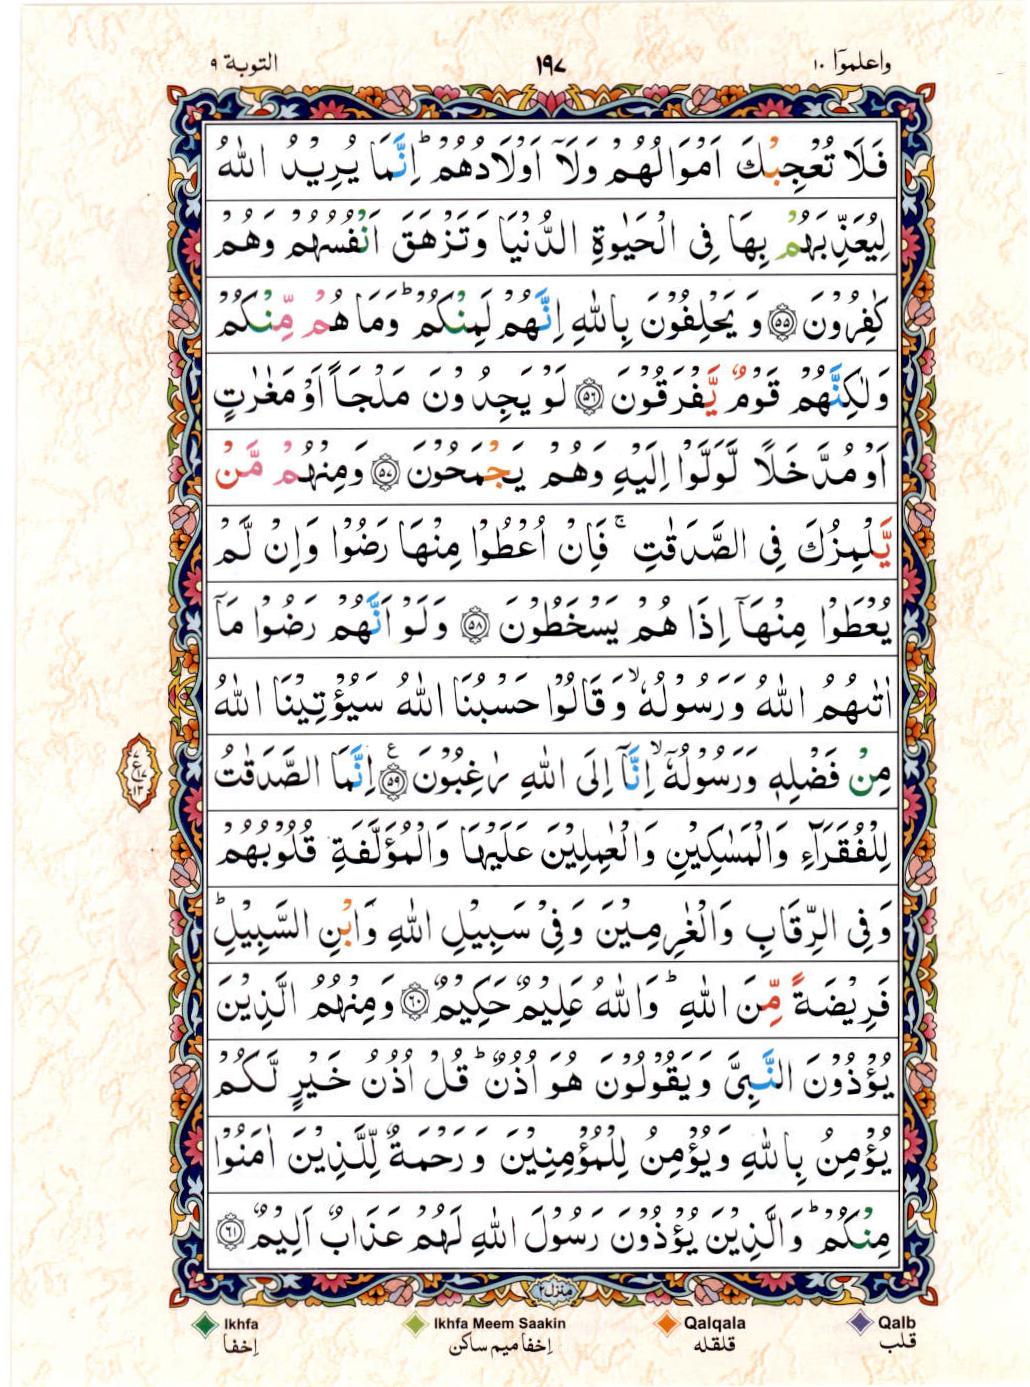 واعلموٓا ١٠
١٩٧
التوبة ٩
فَلَا تُعْجِبْكَ اَمْوَالُهُمْ وَلَاۤ اَوْلَادُهُمْ ؕ اِنَّمَا يُرِيْدُ اللّٰهُ
لِيُعَذِّبَهُمْ بِهَا فِى الْحَيٰوةِ الدُّنْيَا وَتَزْهَقَ اَنْفُسُهُمْ وَهُمْ
كٰفِرُوْنَ ۝٥٥ وَيَحْلِفُوْنَ بِاللّٰهِ اِنَّهُمْ لَمِنْكُمْ ؕ وَمَا هُمْ مِّنْكُمْ
وَلٰكِنَّهُمْ قَوْمٌ يَّفْرَقُوْنَ ۝٥٦ لَوْ يَجِدُوْنَ مَلْجَاً اَوْ مَغٰرٰتٍ
اَوْ مُدَّخَلًا لَّوَلَّوْا اِلَيْهِ وَهُمْ يَجْمَحُوْنَ ۝٥٧ وَمِنْهُمْ مَّنْ
يَّلْمِزُكَ فِى الصَّدَقٰتِ ۚ فَاِنْ اُعْطُوْا مِنْهَا رَضُوْا وَاِنْ لَّمْ
يُعْطَوْا مِنْهَاۤ اِذَا هُمْ يَسْخَطُوْنَ ۝٥٨ وَلَوْ اَنَّهُمْ رَضُوْا مَاۤ
اٰتٰىهُمُ اللّٰهُ وَرَسُوْلُهٗ ۙ وَقَالُوْا حَسْبُنَا اللّٰهُ سَيُؤْتِيْنَا اللّٰهُ
مِنْ فَضْلِهٖ وَرَسُوْلُهٗۤ ۙ اِنَّاۤ اِلَى اللّٰهِ رٰغِبُوْنَ ۝٥٩ ع اِنَّمَا الصَّدَقٰتُ
لِلْفُقَرَآءِ وَالْمَسٰكِيْنِ وَالْعٰمِلِيْنَ عَلَيْهَا وَالْمُؤَلَّفَةِ قُلُوْبُهُمْ
وَفِى الرِّقَابِ وَالْغٰرِمِيْنَ وَفِىْ سَبِيْلِ اللّٰهِ وَابْنِ السَّبِيْلِ ؕ
فَرِيْضَةً مِّنَ اللّٰهِ ؕ وَاللّٰهُ عَلِيْمٌ حَكِيْمٌ ۝٦٠ وَمِنْهُمُ الَّذِيْنَ
يُؤْذُوْنَ النَّبِىَّ وَيَقُوْلُوْنَ هُوَ اُذُنٌ ؕ قُلْ اُذُنُ خَيْرٍ لَّكُمْ
يُؤْمِنُ بِاللّٰهِ وَيُؤْمِنُ لِلْمُؤْمِنِيْنَ وَرَحْمَةٌ لِّلَّذِيْنَ اٰمَنُوْا
مِنْكُمْ ؕ وَالَّذِيْنَ يُؤْذُوْنَ رَسُوْلَ اللّٰهِ لَهُمْ عَذَابٌ اَلِيْمٌ ۝٦١
٧
ع ١٧
١٣
منزل ٢
Ikhfa
Ikhfa Meem Saakin
Qalqala
Qalb
اِخفا
اِخفا ميم ساكن
قلقله
قلب